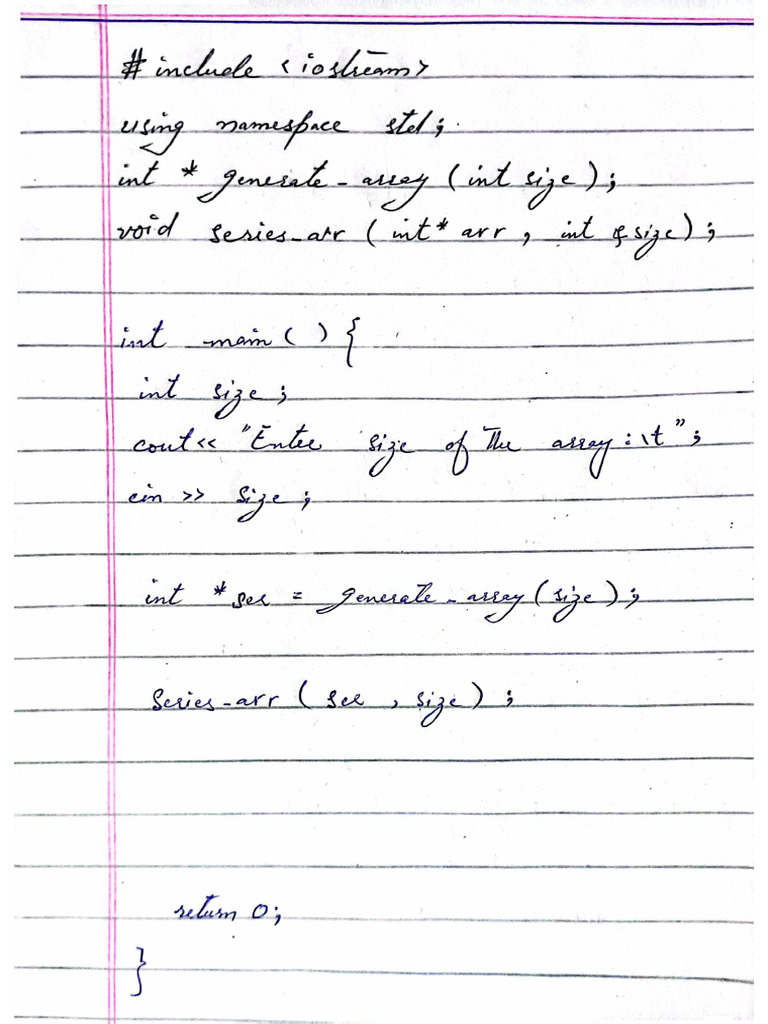 #include <iostream>
using namespace std;
int * generate_array (int size);
void series_arr (int* arr, int &size);
int main() {
int size;
cout<< "Enter size of the array:\t";
cin >> size;
int *ser = generate_array(size);
Series_arr (ser, size);
return 0;
}